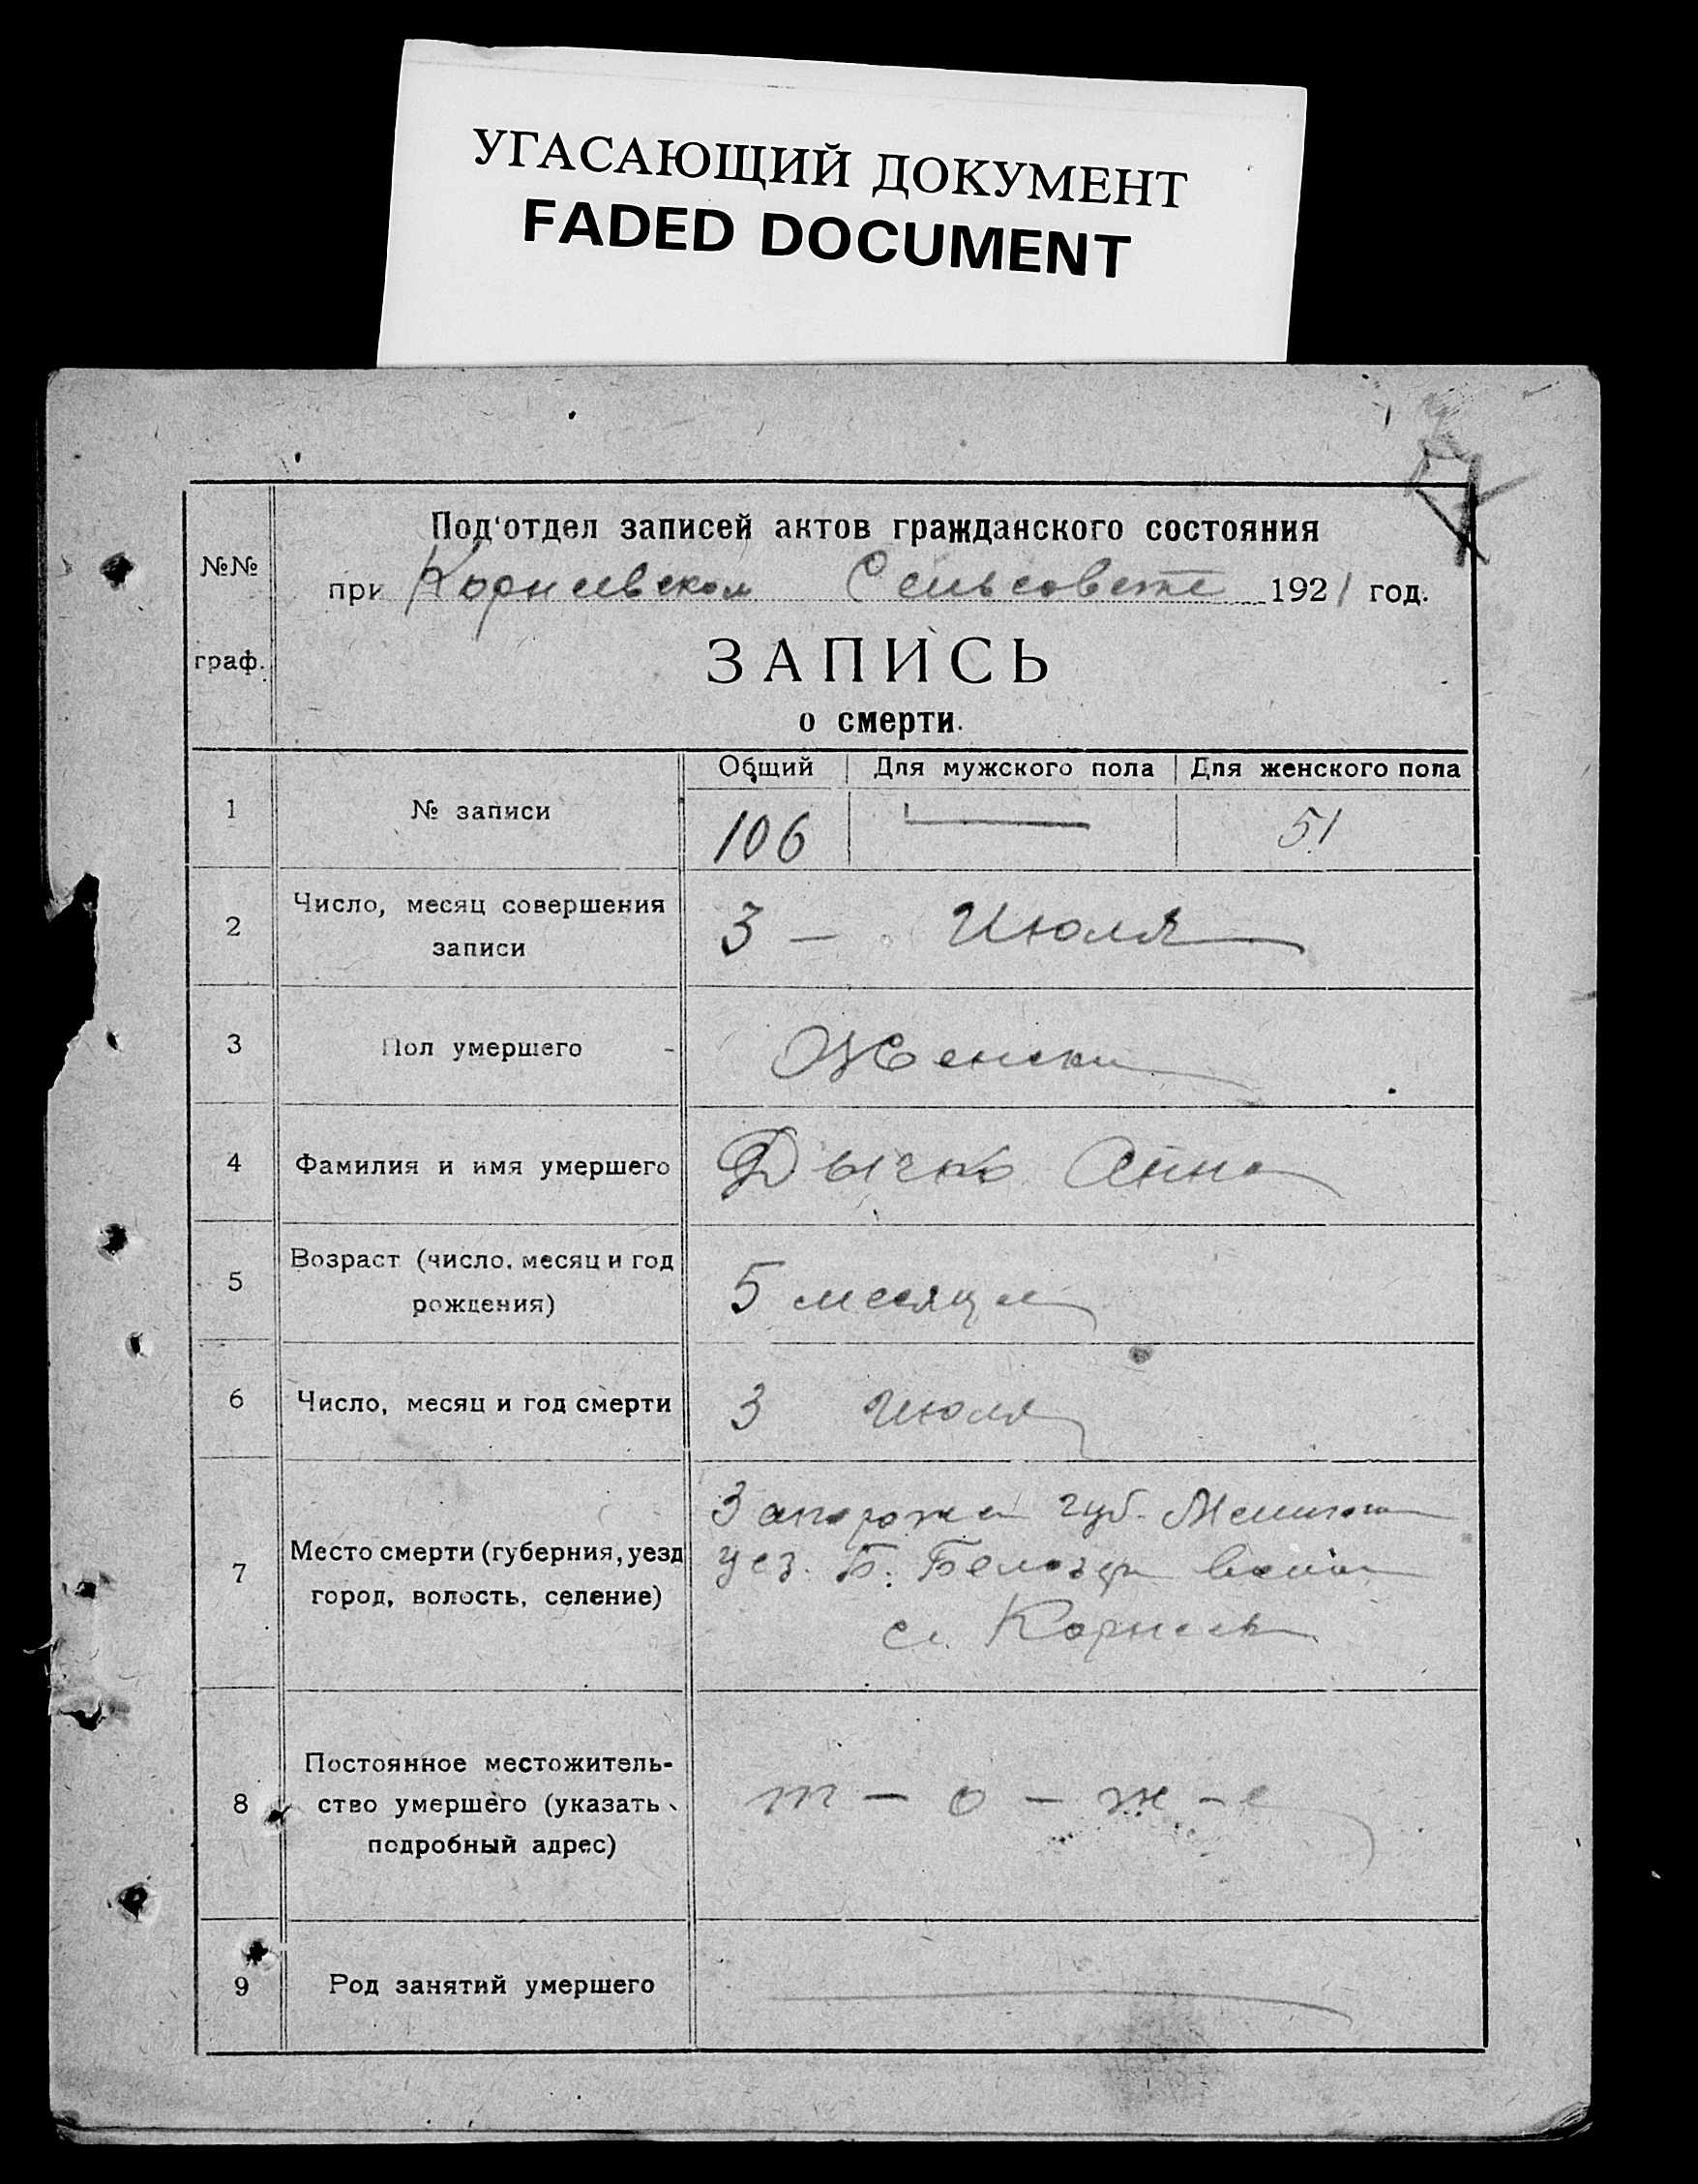 УГАСАЮЩИЙ ДОКУМЕНТ
FADED DOCUMENT
№№ граф.
Под'отдел записей актов гражданского состояния
при Корнеевском Сельсовете 1921 год.
ЗАПИСЬ
о смерти.
Общий Для мужского пола Для женского пола
1 № записи 106 — 51
2 Число, месяц совершения
записи
3 — Июля
3 Пол умершего Женски
4 Фамилия и имя умершего Дычко Анна
5 Возраст (число, месяц и год
рождения)
5 месяцев
6 Число, месяц и год смерти 3 Июля
7 Место смерти (губерния, уезд
город, волость, селение)
Запорожск губ. Мелитоп
уез. Б. Белозер волос
с. Корнеев
8 Постоянное местожитель-
ство умершего (указать
подробный адрес)
т - о - ж - е
9 Род занятий умершего